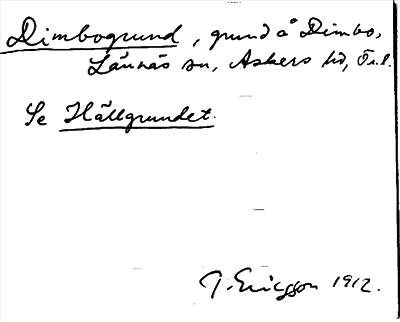 Dimbogrund, grund å Dimbo,
Lännäs sn, Askers hd, Ör.l.
Se Hällgrundet.
J. Ericsson 1912.